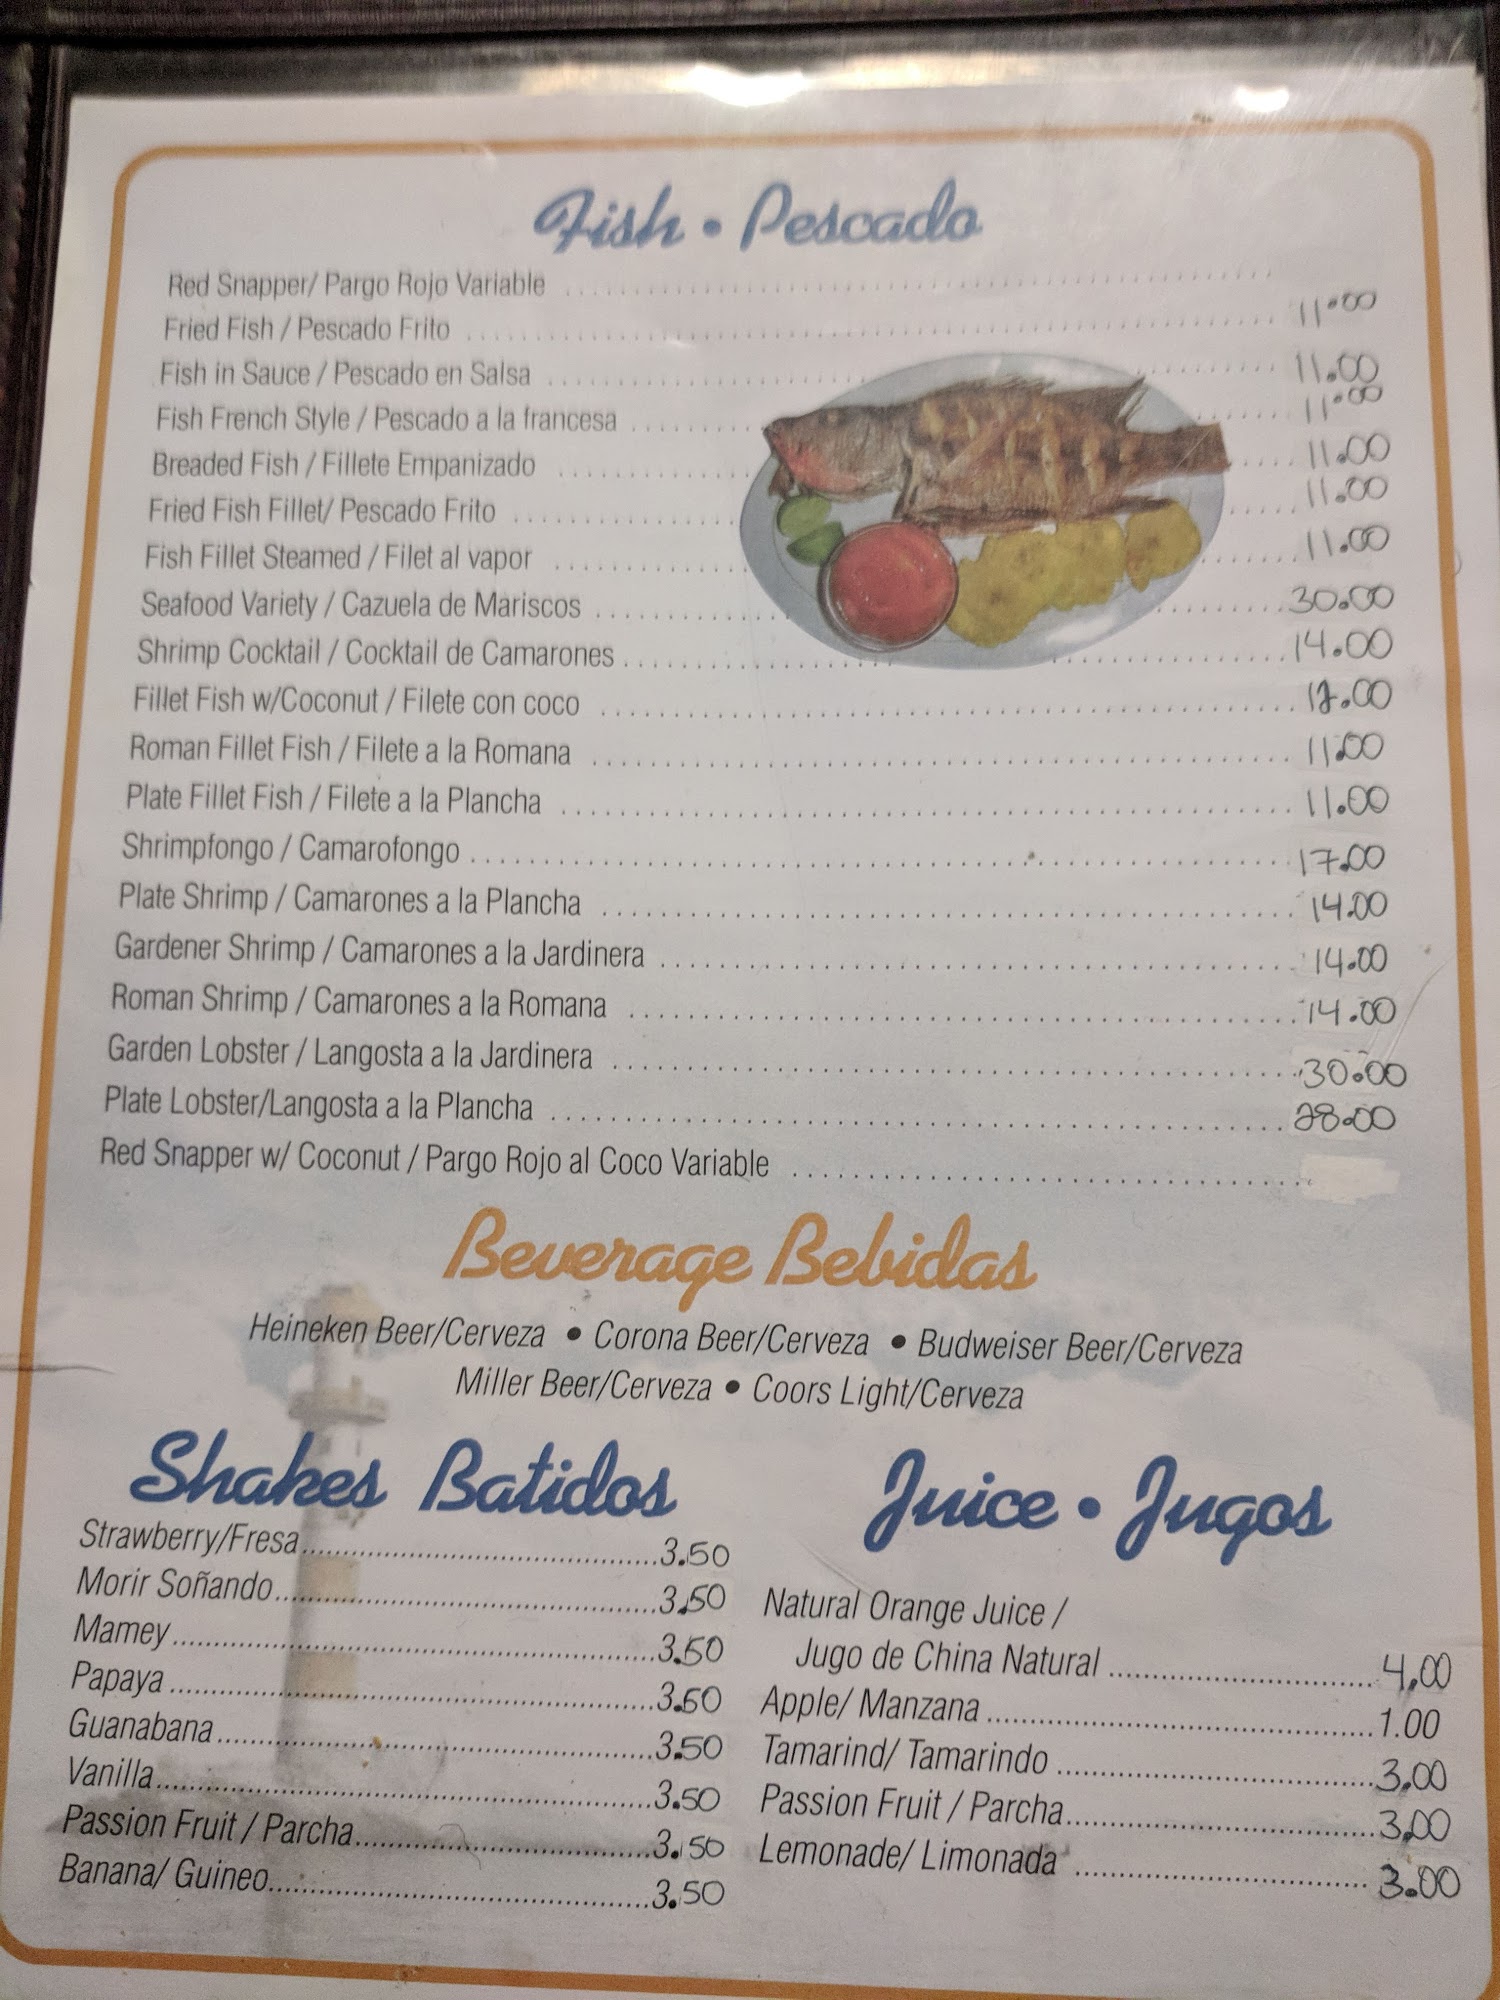 Fish • Pescado
Red Snapper/ Pargo Rojo Variable
Fried Fish / Pescado Frito 11.00
Fish in Sauce / Pescado en Salsa 11.00
Fish French Style / Pescado a la francesa 11.00
Breaded Fish / Fillete Empanizado 11.00
Fried Fish Fillet/ Pescado Frito 11.00
Fish Fillet Steamed / Filet al vapor 11.00
Seafood Variety / Cazuela de Mariscos 30.00
Shrimp Cocktail / Cocktail de Camarones 14.00
Fillet Fish w/Coconut / Filete con coco
Roman Fillet Fish / Filete a la Romana 11.00
Plate Fillet Fish / Filete a la Plancha 11.00
Shrimpfongo / Camarofongo 17.00
Plate Shrimp / Camarones a la Plancha 14.00
Gardener Shrimp / Camarones a la Jardinera 14.00
Roman Shrimp / Camarones a la Romana 14.00
Garden Lobster / Langosta a la Jardinera 30.00
Plate Lobster/Langosta a la Plancha 28.00
Red Snapper w/ Coconut / Pargo Rojo al Coco Variable
Beverage Bebidas
Heineken Beer/Cerveza • Corona Beer/Cerveza • Budweiser Beer/Cerveza
Miller Beer/Cerveza • Coors Light/Cerveza
Shakes Batidos
Strawberry/Fresa 3.50
Morir Soñando 3.50
Mamey 3.50
Papaya 3.50
Guanabana 3.50
Vanilla 3.50
Passion Fruit / Parcha 3.50
Banana/ Guineo 3.50
Juice • Jugos
Natural Orange Juice /
Jugo de China Natural 4.00
Apple/ Manzana 1.00
Tamarind/ Tamarindo 3.00
Passion Fruit / Parcha 3.00
Lemonade/ Limonada 3.00